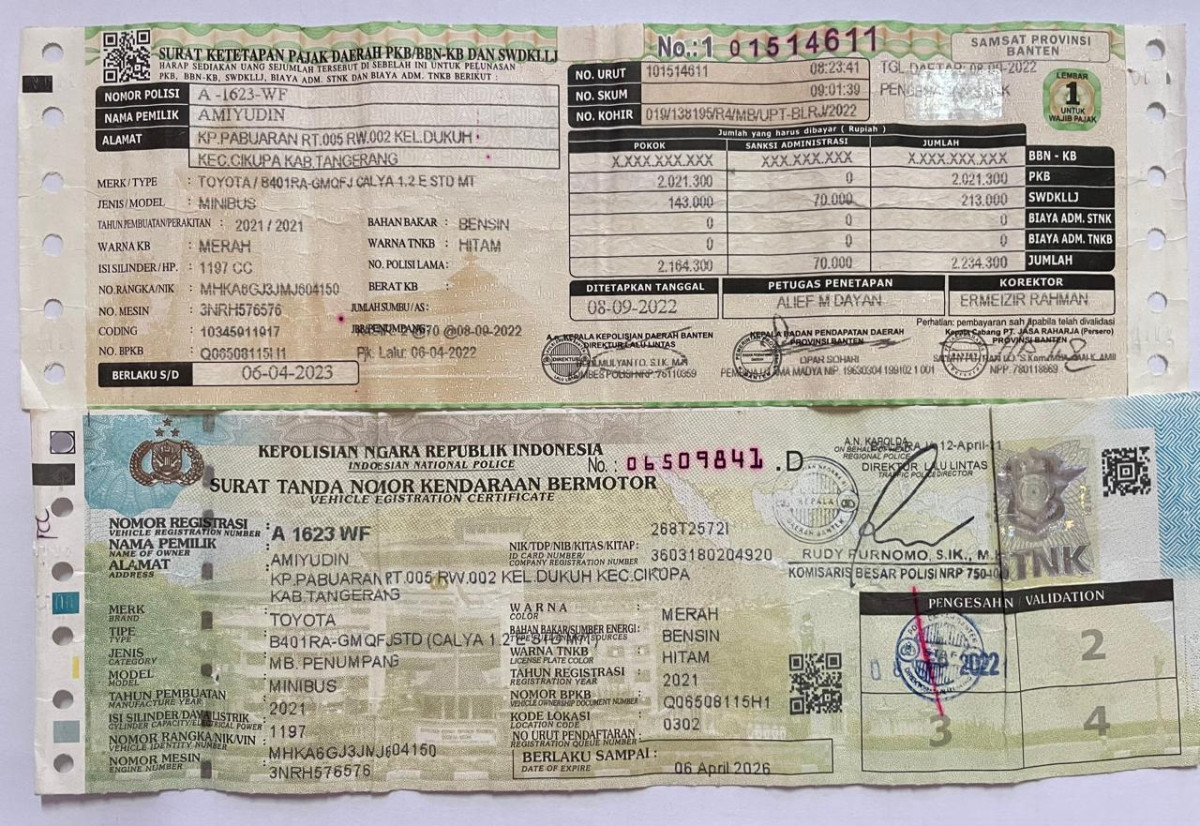 SURAT KETETAPAN PAJAK DAERAH PKB/BBN-KB DAN SWDKLLJ
HARAP SEDIAKAN UANG SEJUMLAH TERSEBUT DI SEBELAH INI UNTUK PELUNASAN
PKB, BBN-KB, SWDKLLJ, BIAYA ADM. STNK DAN BIAYA ADM. TNKB BERIKUT :
No.:1 01514611
SAMSAT PROVINSI
BANTEN
NO. URUT 101514611 08:23:41
TGL.DAFTAR 08-09-2022
NO. SKUM 09:01:39
NO. KOHIR 019/138195/R4/MB/UPT-BLRJ/2022
LEMBAR
1
UNTUK
WAJIB PAJAK
NOMOR POLISI A -1623-WF
NAMA PEMILIK AMIYUDIN
ALAMAT KP.PABUARAN RT.005 RW.002 KEL.DUKUH
KEC.CIKUPA KAB.TANGERANG
MERK/TYPE : TOYOTA / B401RA-GMQFJ CALYA 1.2 E STD MT
JENIS/MODEL : MINIBUS
TAHUN PEMBUATAN/PERAKITAN : 2021 / 2021
BAHAN BAKAR : BENSIN
WARNA KB : MERAH
WARNA TNKB : HITAM
ISI SILINDER/HP. : 1197 CC
NO. POLISI LAMA :
NO.RANGKA/NIK : MHKA6GJ3JMJ604150
BERAT KB :
NO. MESIN : 3NRH576576
JUMLAH SUMBU/AS :
CODING : 10345911917
@08-09-2022
NO. BPKB : Q06508115H1
Pjk. Lalu: 06-04-2022
BERLAKU S/D 06-04-2023
Jumlah yang harus dibayar ( Rupiah )
POKOK SANKSI ADMINISTRASI JUMLAH
X.XXX.XXX.XXX XXX.XXX.XXX X.XXX.XXX.XXX BBN - KB
2.021.300 0 2.021.300 PKB
143.000 70.000 213.000 SWDKLLJ
0 0 0 BIAYA ADM. STNK
0 0 0 BIAYA ADM. TNKB
2.164.300 70.000 2.234.300 JUMLAH
DITETAPKAN TANGGAL PETUGAS PENETAPAN KOREKTOR
08-09-2022 ALIEF M DAYAN ERMEIZIR RAHMAN
Perhatian: pembayaran sah Apabila telah divalidasi
KEPALA KEPOLISIAN DAERAH BANTEN
DIREKTUR LALU LINTAS
KEPALA BADAN PENDAPATAN DAERAH
PROVINSI BANTEN
Kepala Cabang PT. JASA RAHARJA (Persero)
PROVINSI BANTEN
OPAR SOHARI
NIP. 19630304 199102 1 001
NPP. 780118869
KEPOLISIAN NGARA REPUBLIK INDONESIA
INDOESIAN NATIONAL POLICE
No.: 06509841 .D
SURAT TANDA NOMOR KENDARAAN BERMOTOR
VEHICLE EGISTRATION CERTIFICATE
A.N. KAROLDA
ON BEHALF
REGIONAL POLICE
12-April-21
DIREKTUR LALU LINTAS
TRAFFIC POLICE DIRECTOR
RUDY PURNOMO, S.IK., M.
KOMISARIS BESAR POLISI NRP
TNK
NOMOR REGISTRASI : A 1623 WF
VEHICLE REGISTRATION NUMBER
268T2572I
NAMA PEMILIK : AMIYUDIN
NAME OF OWNER
NIK/TDP/NIB/KITAS/KITAP: 3603180204920
ID CARD NUMBER/
COMPANY REGISTRATION NUMBER
ALAMAT : KP.PABUARAN RT.005 RW.002 KEL.DUKUH KEC.CIKUPA
ADDRESS
KAB.TANGERANG
MERK : TOYOTA
BRAND
WARNA : MERAH
COLOR
TIPE : B401RA-GMQFJSTD (CALYA 1.2 E STD MT
TYPE
BAHAN BAKAR/SUMBER ENERGI : BENSIN
JENIS : MB. PENUMPANG
CATEGORY
WARNA TNKB : HITAM
LICENSE PLATE COLOR
MODEL : MINIBUS
MODEL
TAHUN REGISTRASI : 2021
REGISTRATION YEAR
TAHUN PEMBUATAN : 2021
MANUFACTURE YEAR
NOMOR BPKB : Q06508115H1
VEHICLE OWNERSHIP DOCUMENT NUMBER
ISI SILINDER/DAYA LISTRIK : 1197
CYLINDER CAPACITY/ELECTRICAL POWER
KODE LOKASI : 0302
LOCATION CODE
NOMOR RANGKA/NIK/VIN : MHKA6GJ3JMJ604150
VEHICLE IDENTITY NUMBER
NO URUT PENDAFTARAN :
REGISTRATION QUEUE NUMBER
NOMOR MESIN : 3NRH576576
ENGINE NUMBER
BERLAKU SAMPAI : 06 April 2026
DATE OF EXPIRE
PENGESAHN / VALIDATION
2022
2
3
4